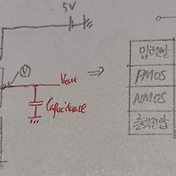 5V
V
Vout
Capacitance
⇒
입력단
PMOS
NMOS
출력전압